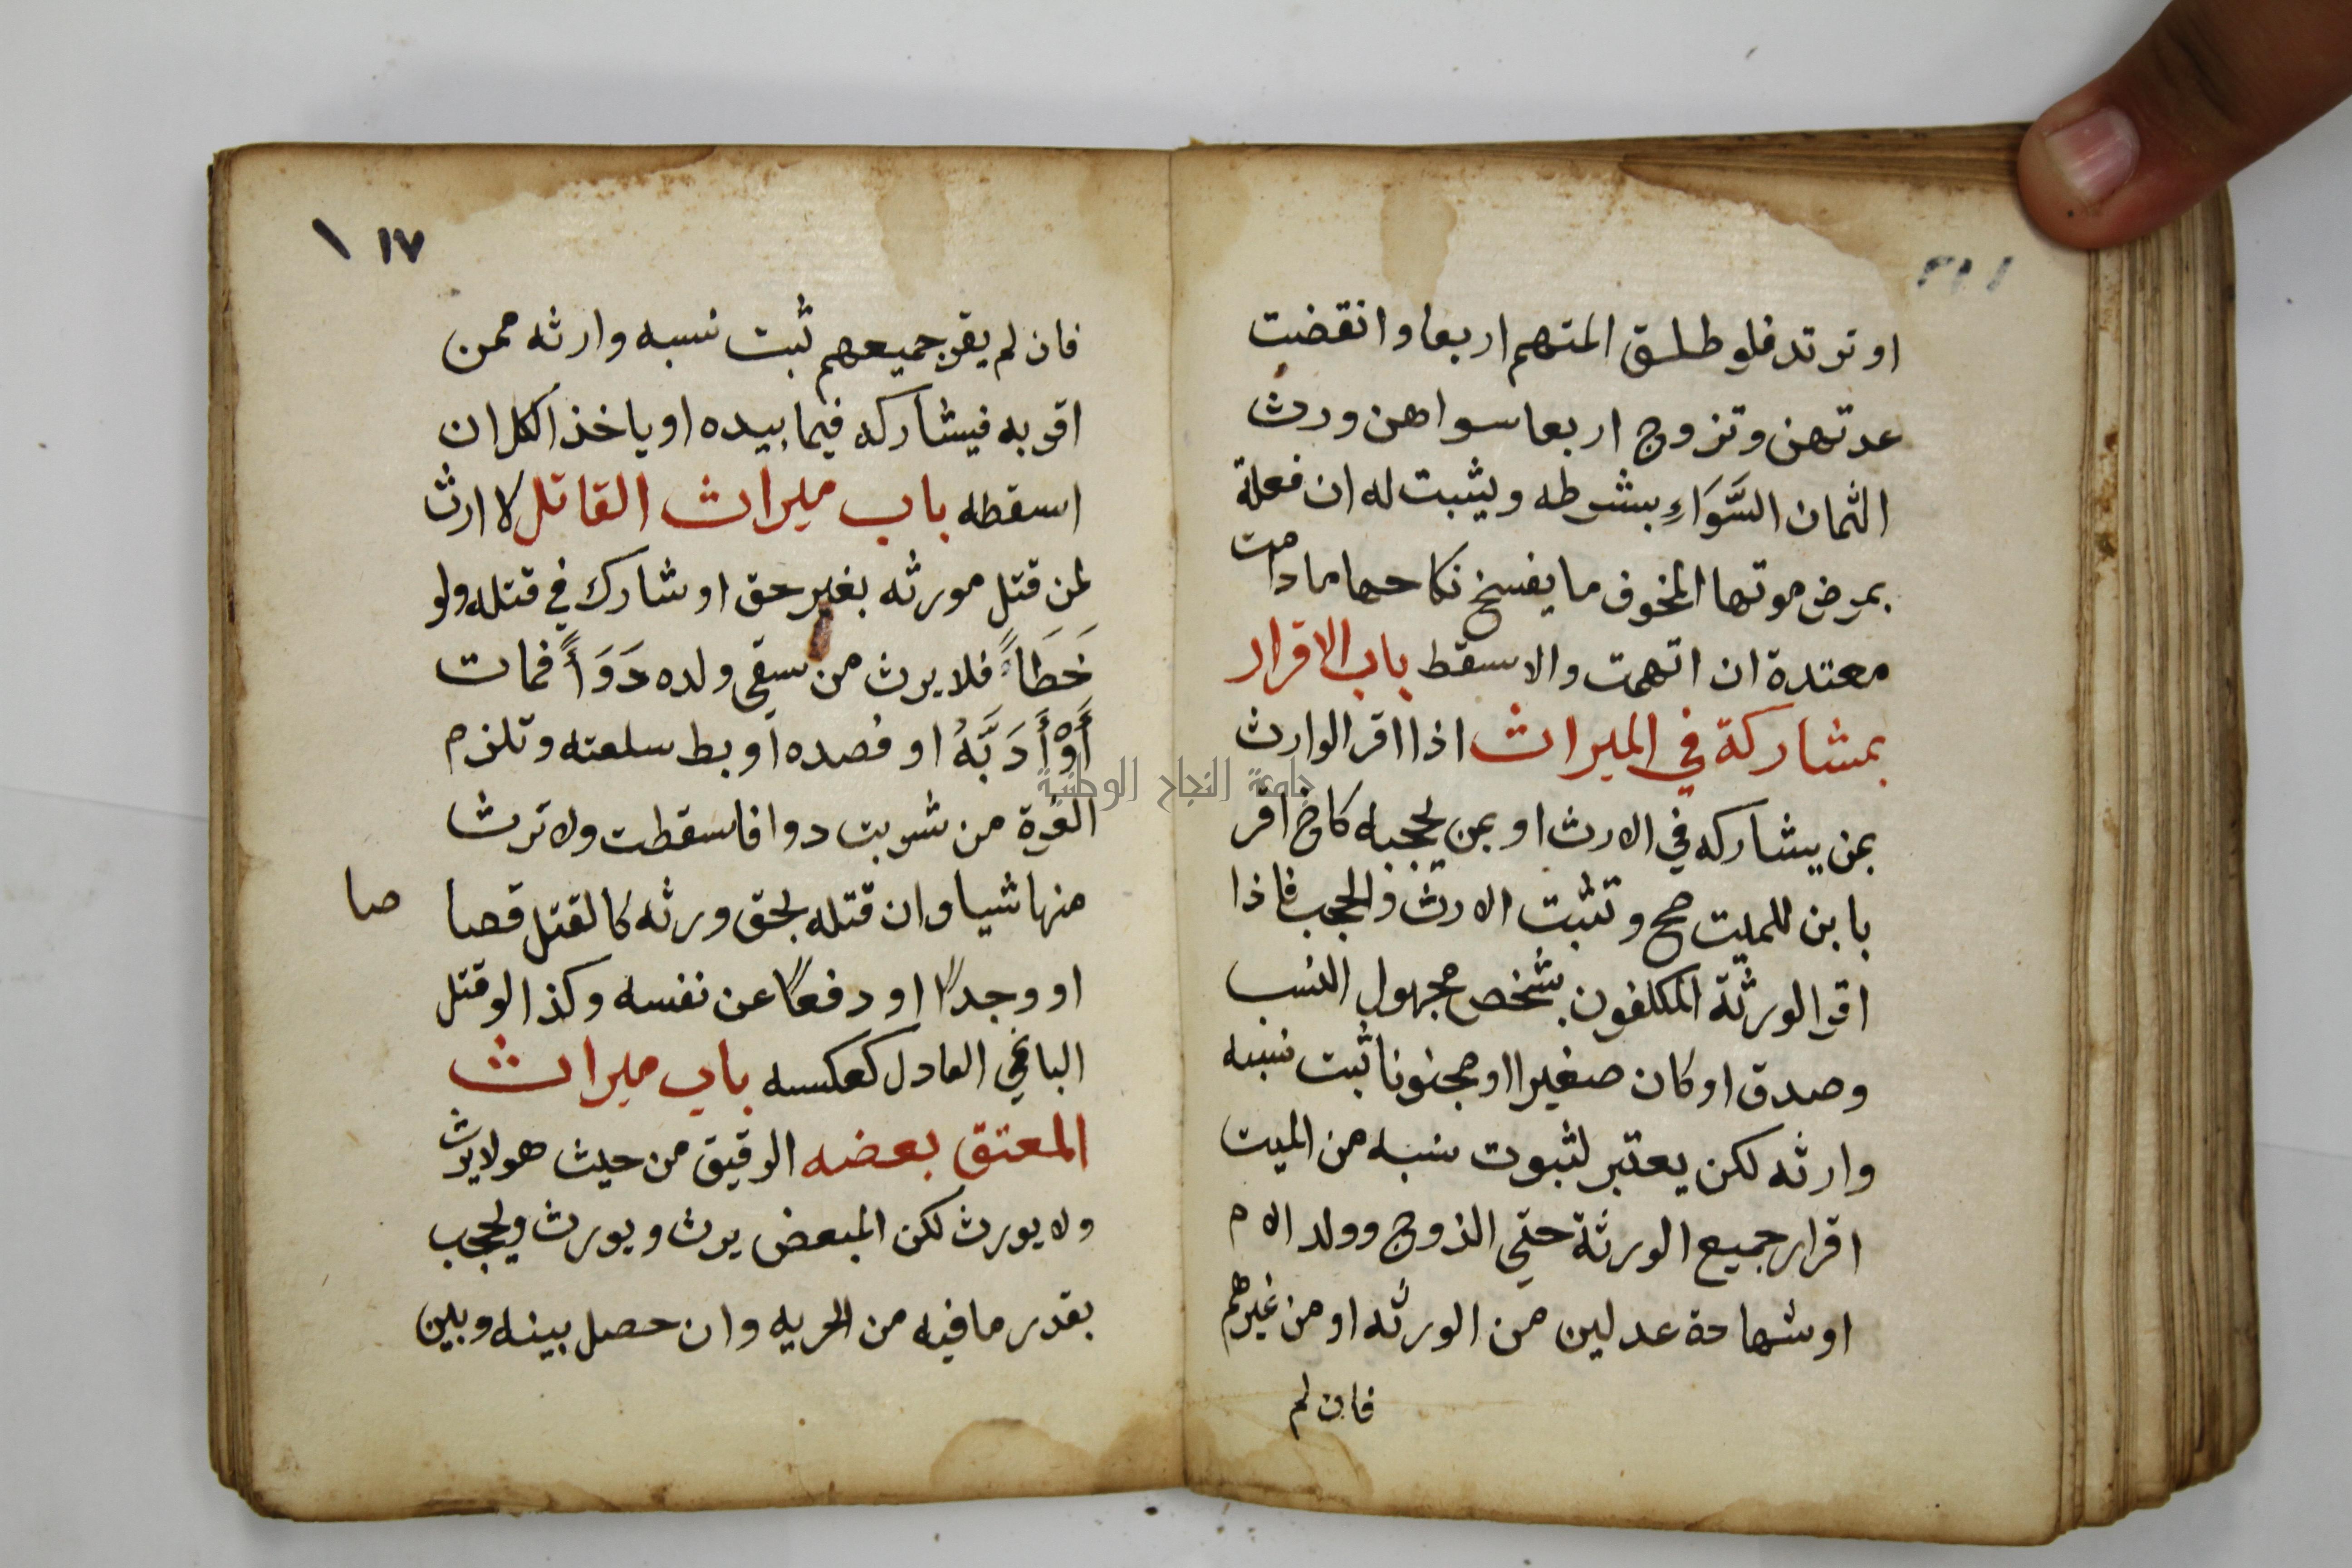 او ترتد فلو طلق المتهم اربعا وانقضت
عدتهن وتزوج اربعا سواهن ورث
الثمان السَّوَاءِ بشرطه ويثبت له ان فعلة
بمرض موتها المخوف ما يفسخ نكاحها مادامت
معتدة ان اتهمت والا سقط باب الاقرار
بمشاركة في الميراث اذا اقر الوارث
بمن يشاركه في الارث او بمن يحجبه كاخ اقر
بابن للميت صح وتثبت الارث والحجب فاذا
اقر الورثة المكلفون بشخص مجهول النسب
وصدق او كان صغيرا او مجنونا ثبت نسبه
وارثه لكن يعتبر لثبوت نسبه من الميت
اقرار جميع الورثة حتي الزوج وولد الام
او شهادة عدلين من الورثه او من غيرهم
فان لم
١ ١٧
فان لم يقر جميعهم ثبت نسبه وارثه ممن
اقر به فيشاركه فيما بيده او ياخذ الكل ان
اسقطه باب ميراث القاتل لا ارث
لمن قتل مورثه بغير حق او شارك في قتله ولو
خَطَاً فلا يرث من سقي ولده دَوَاً فمات
أَوْ أَدَبَّهُ او فصده او بط سلعته وتلزم
الغرة من شربت دوا فاسقطت ولا ترث
منها شيا وان قتله بحق ورثه كالقتل قصا صا
او وجدًا او دفعًا عن نفسه وكذا لو قتل
الباغي العادل كعكسه باب ميراث
المعتق بعضه الرقيق من حيث هو لا يرث
ولا يورث لكن المبعض يرث ويورث ويحجب
بقدر ما فيه من الحريه وان حصل بينه وبين
جامعة النجاح الوطنية